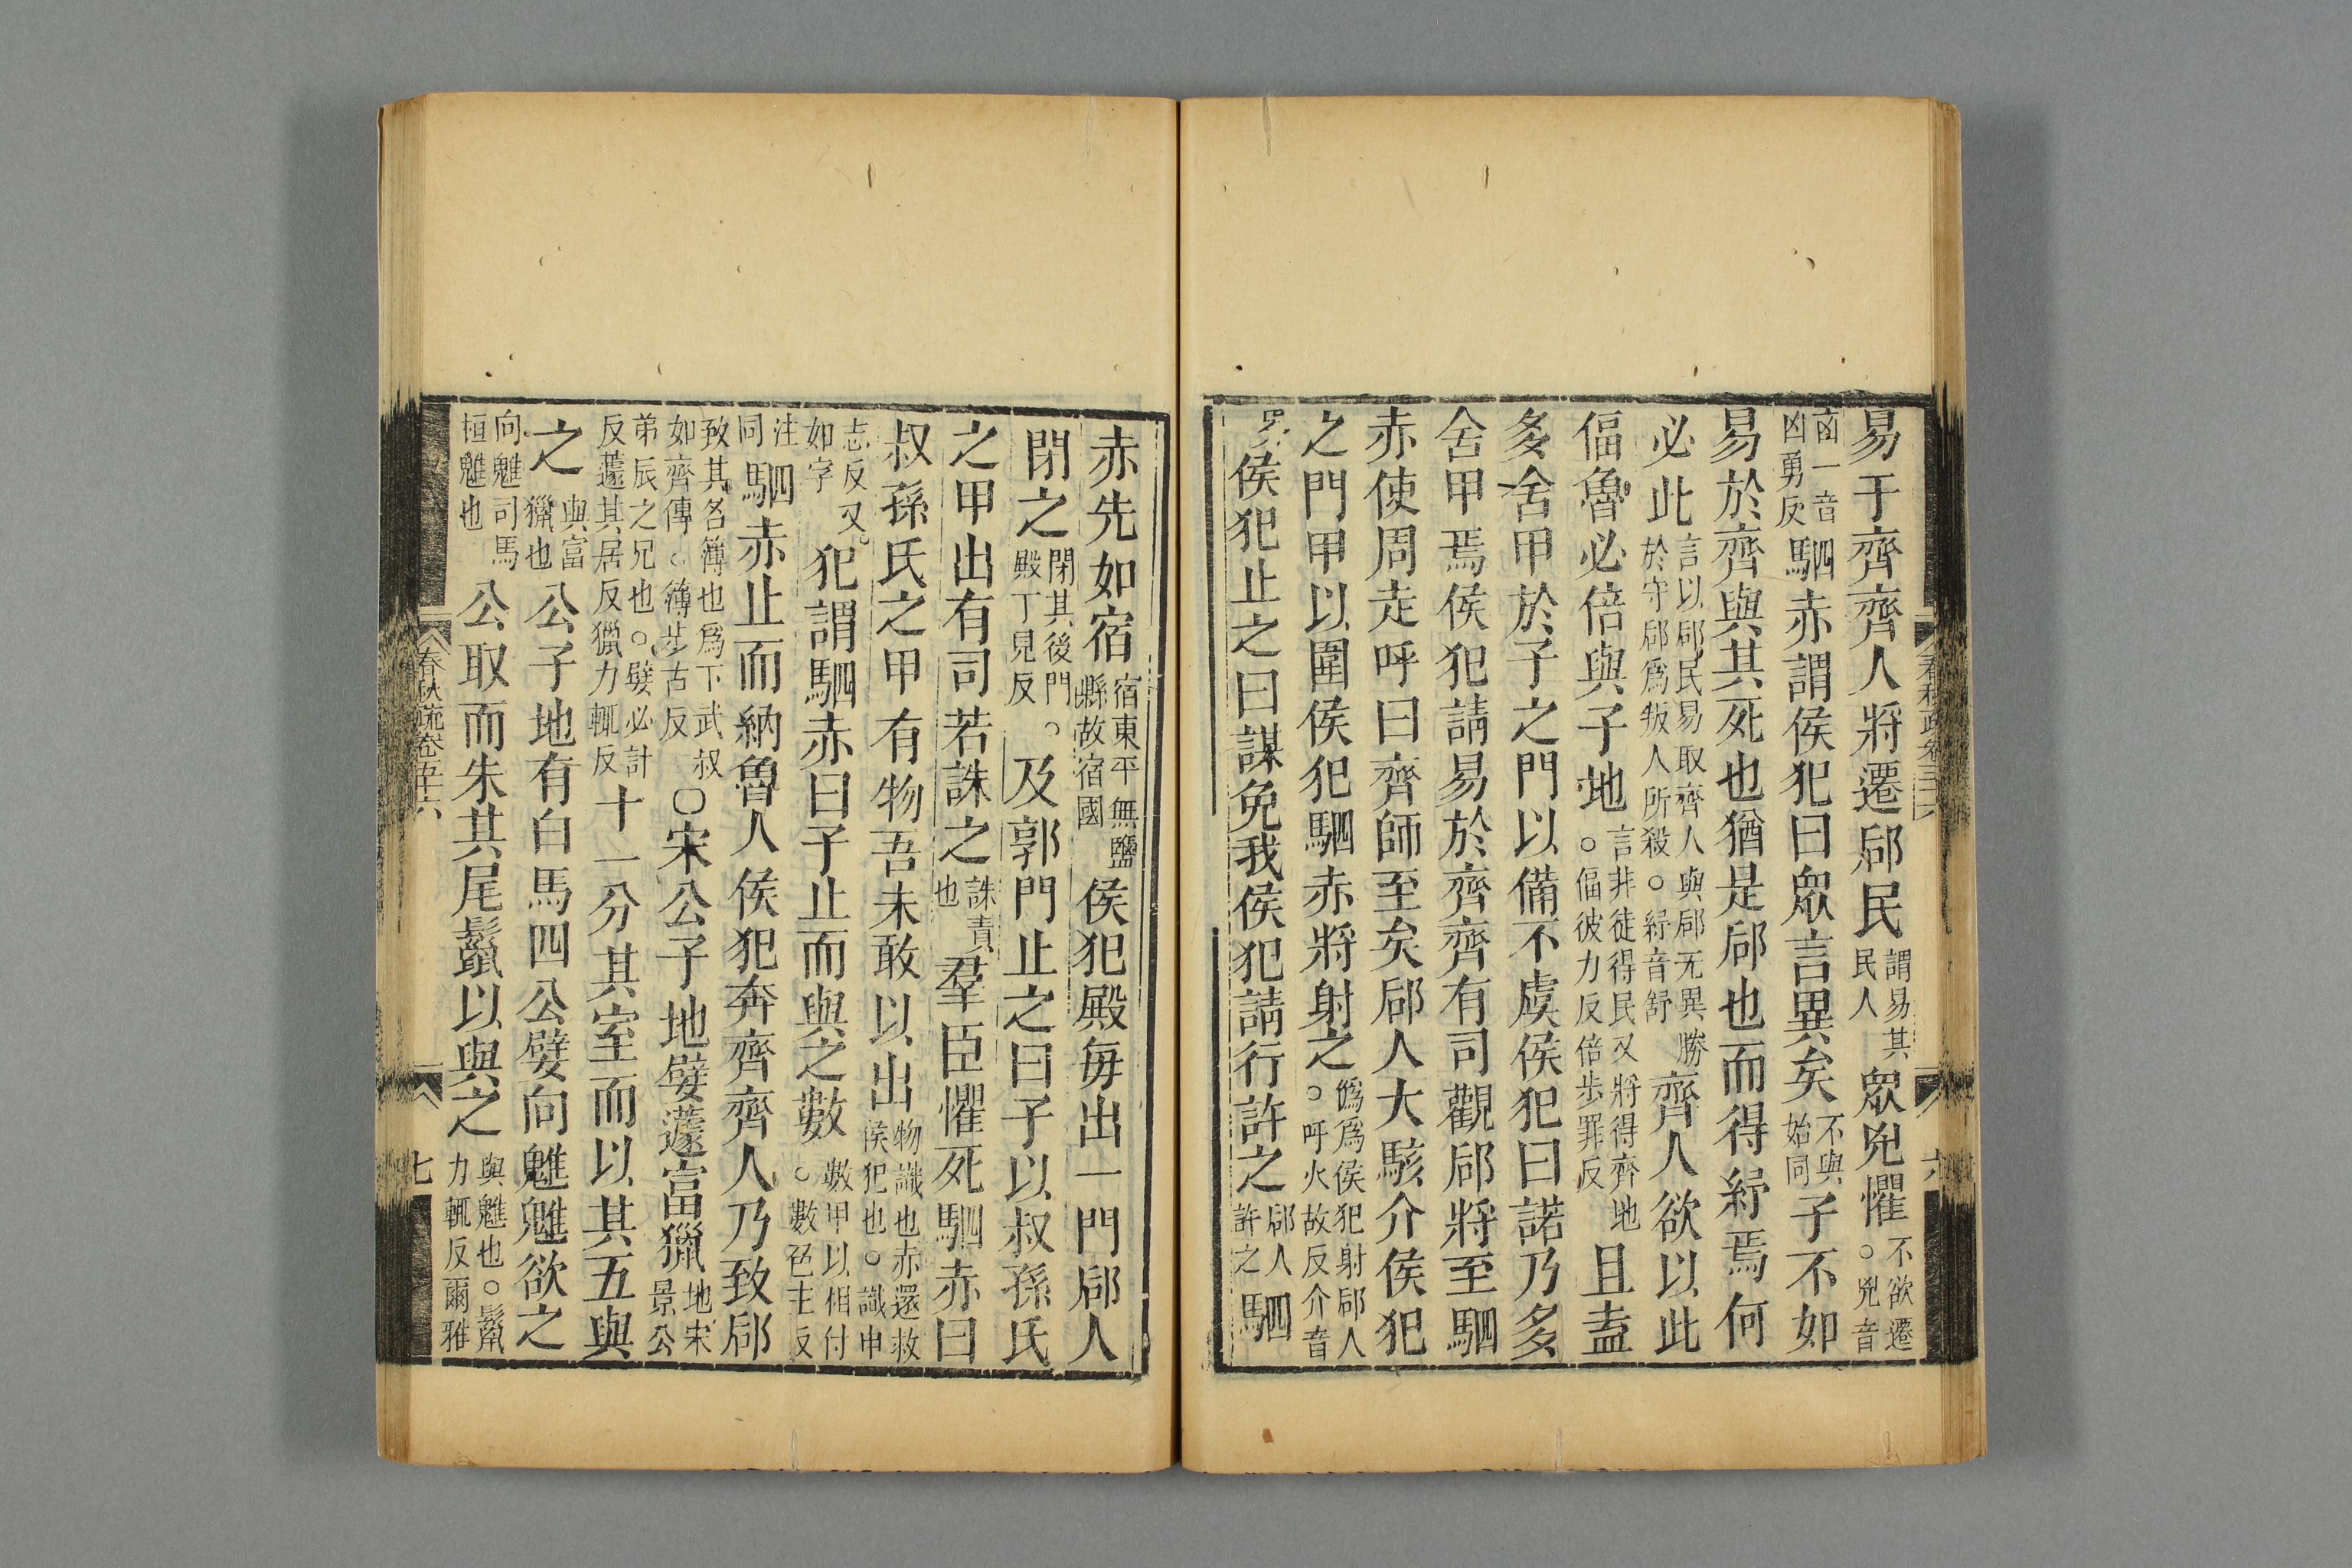 易于齊齊人將遷郈民謂易其民人眾兇懼不欲遷○兇音
㐫一音凶勇反駟赤謂侯犯曰眾言異矣不與始同子不如
易於齊與其死也猶是郈也而得紓焉何
必此言以郈民易取齊人與郈无異勝於守郈爲叛人所殺○紓音舒齊人欲以此
偪魯必倍與子地言非徒得民又將得齊地○偪彼力反倍步罪反且盍
多舍甲於子之門以備不虞侯犯曰諾乃多
舍甲焉侯犯請易於齊齊有司觀郈將至駟
赤使周走呼曰齊師至矣郈人大駭介侯犯
之門甲以圍侯犯駟赤將射之僞爲侯犯射郈人○呼火故反介音
侯犯止之曰謀免我侯犯請行許之郈人許之駟
春秋疏卷五十六
六
赤先如宿宿東平無鹽縣故宿國侯犯殿每出一門郈人
閉之閉其後門○殿丁見反及郭門止之曰子以叔孫氏
之甲出有司若誅之誅責也羣臣懼死駟赤曰
叔孫氏之甲有物吾未敢以出物識也赤還救侯犯也○識申
志反又如字犯謂駟赤曰子止而與之數數甲以相付○數色主反
注同駟赤止而納魯人侯犯奔齊齊人乃致郈
致其名簿也爲下武叔如齊傳○簿步古反○宋公子地嬖蘧富獵地宋景公
弟辰之兄也○嬖必計反蘧其居反獵力輒反十一分其室而以其五與
之與富獵也公子地有白馬四公嬖向魋魋欲之
向魋司馬桓魋也公取而朱其尾鬣以與之與魋也○鬣力輒反爾雅
春秋疏卷五十六
七